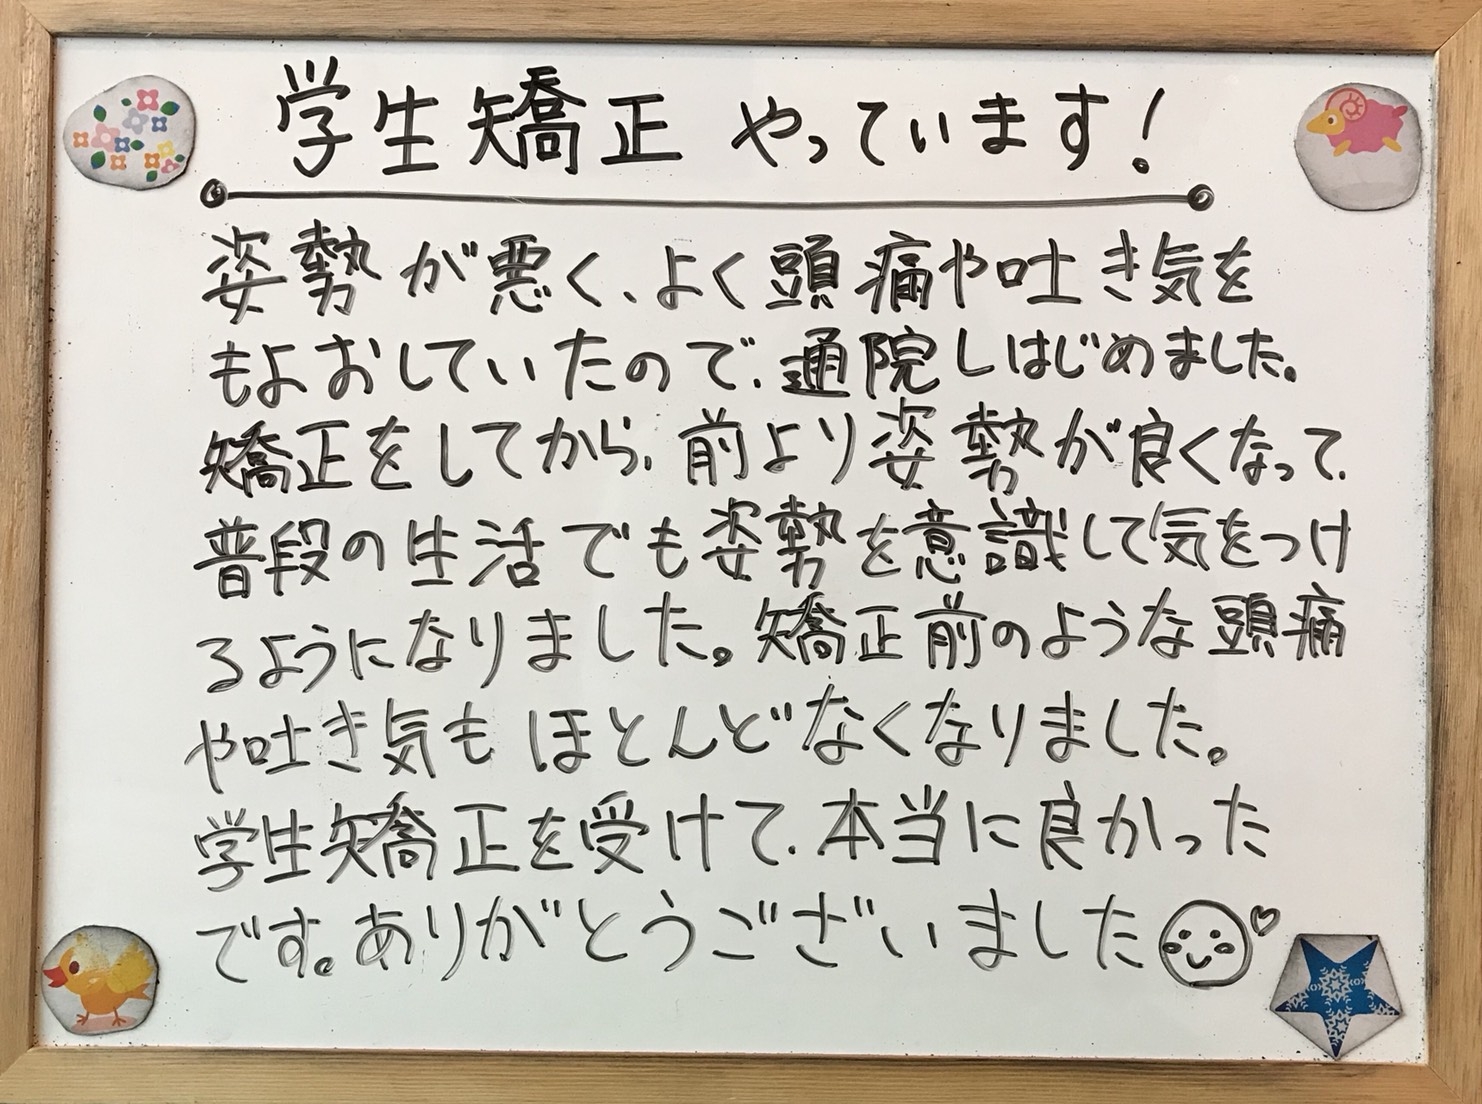 学生矯正 やっています!
姿勢が悪く、よく頭痛や吐き気を
もよおしていたので、通院しはじめました。
矯正をしてから、前より姿勢が良くなって、
普段の生活でも姿勢を意識して気をつけ
るようになりました。矯正前のような頭痛
や吐き気もほとんどなくなりました。
学生矯正を受けて、本当に良かった
です。ありがとうございました